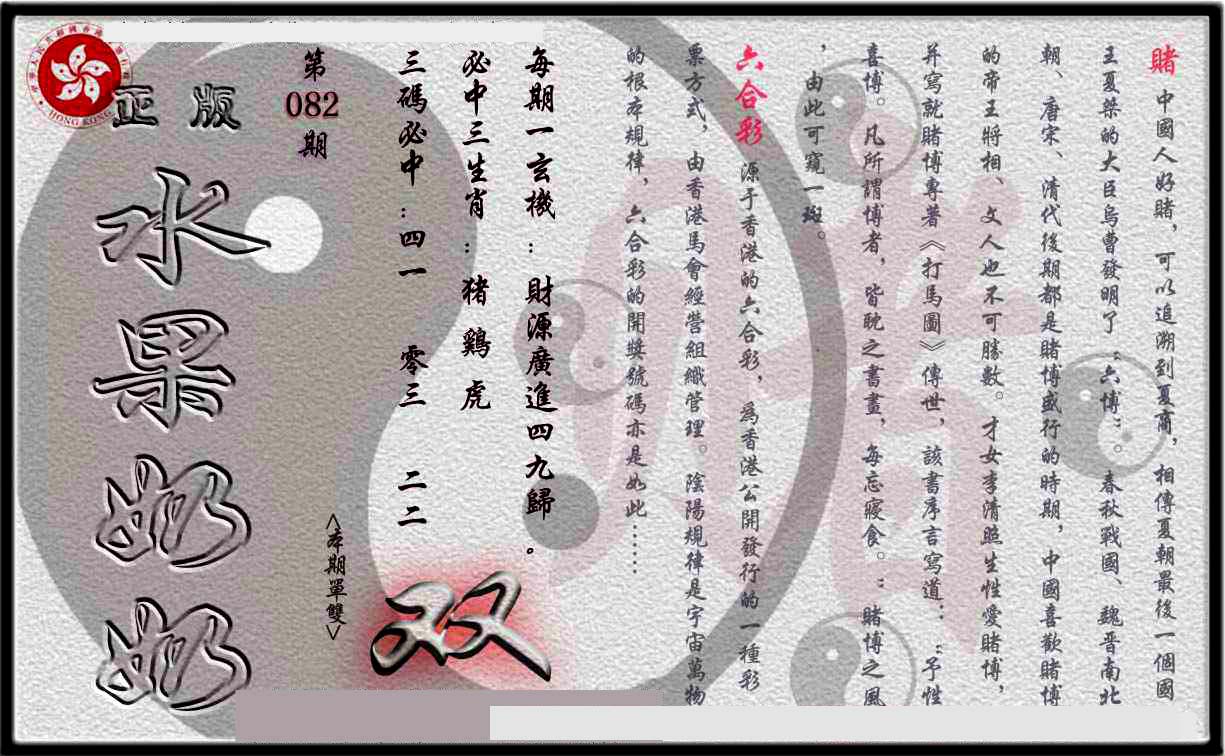 賭 中國人好賭，可以追溯到夏商，相傳夏朝最後一個國
王夏桀的大臣烏曹發明了“六博”。春秋戰國、魏晋南北
朝、唐宋、清代後期都是賭博盛行的時期，中國喜歡賭博
的帝王將相、文人也不可勝數。才女李清照生性愛賭博，
并寫就賭博專著《打馬圖》傳世，該書序言寫道：“予性
喜博。凡所謂博者，皆耽之書畫，每忘寢食。”賭博之風
，由此可窺一斑。
六合彩 源于香港的六合彩，為香港公開發行的一種彩
票方式，由香港馬會經營組織管理。陰陽規律是宇宙萬物
的根本規律，六合彩的開獎號碼亦是如此……
每期一玄機：財源廣進四九歸。
必中三生肖：猪鷄虎
三碼必中：四一 零三 二二
<本期單雙>
双
第
082
期
正版
水果奶奶
HONG KONG